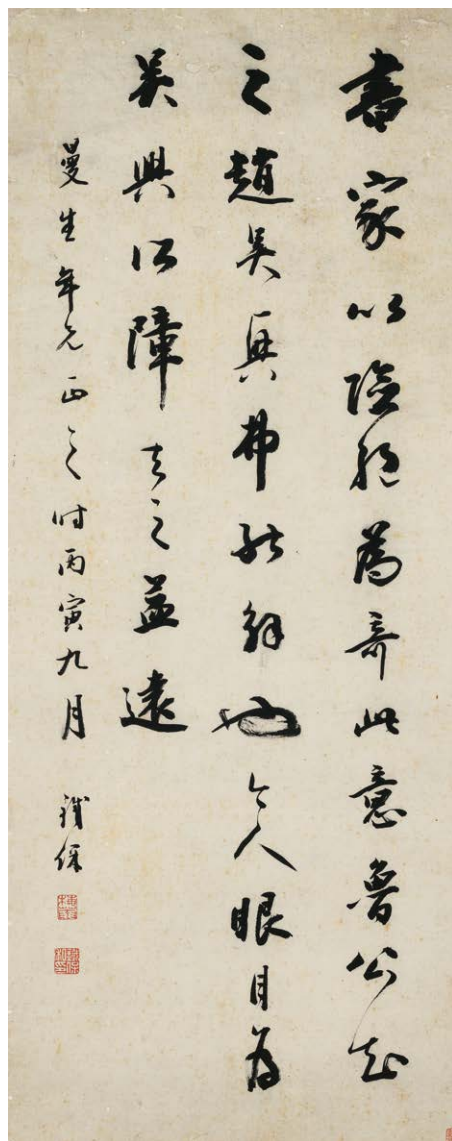 書家以險絕為奇此意魯公知
之趙吳興弗能解也今人眼目為
吳興所障去之益遠
曼生年兄正之時丙寅九月 鐵保